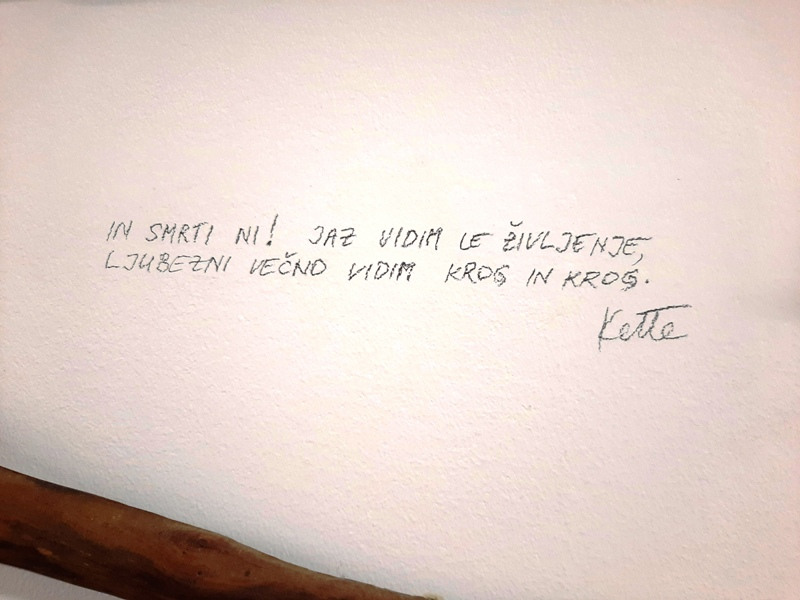 IN SMRTI NI! JAZ VIDIM LE ŽIVLJENJE,
LJUBEZNI VEČNO VIDIM KROG IN KROG.
Kette